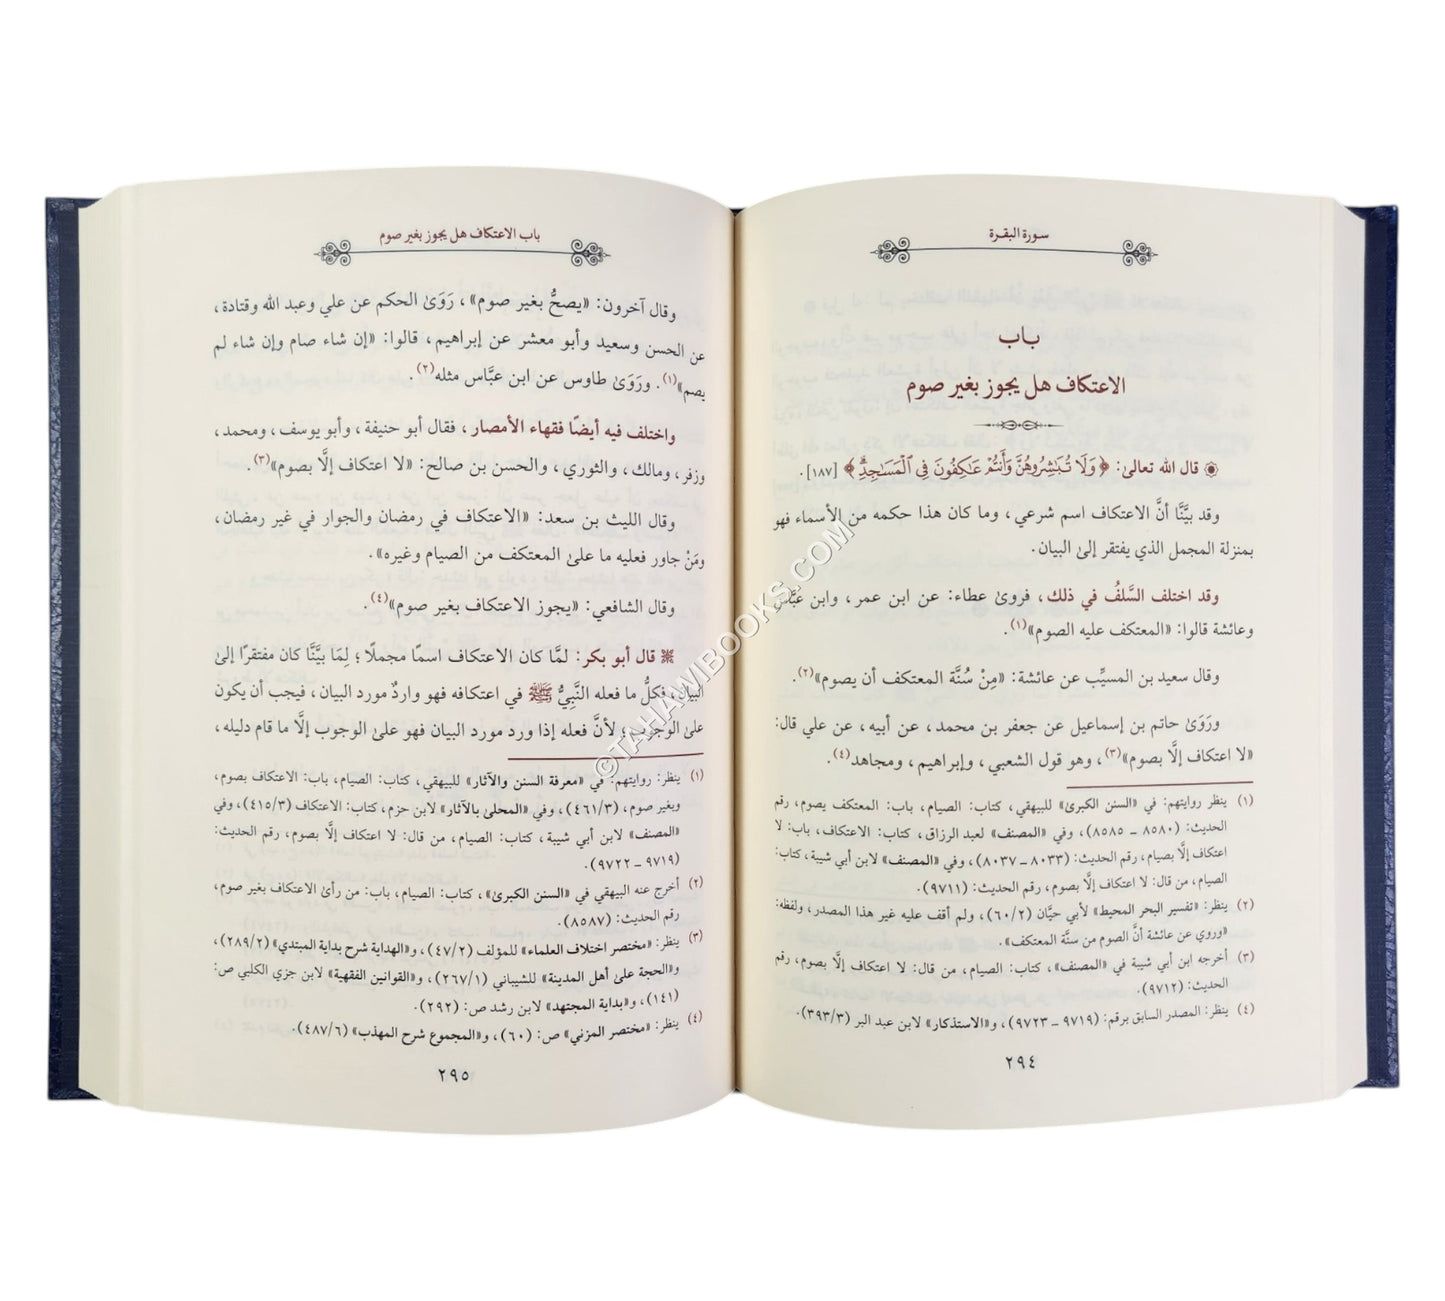 سورة البقرة
باب
الاعتكاف هل يجوز بغير صوم
قال الله تعالىٰ: ﴿وَلَا تُبَٰشِرُوهُنَّ وَأَنتُمۡ عَٰكِفُونَ فِي ٱلۡمَسَٰجِدِۗ﴾ [١٨٧].
وقد بيَّنَّا أنَّ الاعتكاف اسم شرعي، وما كان هذا حكمه من الأسماء فهو
بمنزلة المجمل الذي يفتقر إلىٰ البيان.
وقد اختلف السَّلفُ في ذلك، فروىٰ عطاء: عن ابن عمر، وابن عبَّاس
وعائشة قالوا: «المعتكف عليه الصوم»(١).
وقال سعيد بن المسيِّب عن عائشة: «مِنْ سُنَّة المعتكف أن يصوم»(٢).
ورَوَىٰ حاتم بن إسماعيل عن جعفر بن محمد، عن أبيه، عن علي قال:
«لا اعتكاف إلَّا بصوم»(٣)، وهو قول الشعبي، وإبراهيم، ومجاهد(٤).
(١) ينظر روايتهم: في «السنن الكبرىٰ» للبيهقي، كتاب: الصيام، باب: المعتكف يصوم، رقم
الحديث: (٨٥٨٠ – ٨٥٨٥)، وفي «المصنف» لعبد الرزاق، كتاب: الاعتكاف، باب: لا
اعتكاف إلَّا بصيام، رقم الحديث: (٨٠٣٣ – ٨٠٣٧)، وفي «المصنف» لابن أبي شيبة، كتاب:
الصيام، من قال: لا اعتكاف إلَّا بصوم، رقم الحديث: (٩٧١١).
(٢) ينظر: «تفسير البحر المحيط» لأبي حيَّان (٦٠/٢)، ولم أقف عليه غير هذا المصدر، ولفظه:
«وروي عن عائشة أنَّ الصوم من سنَّة المعتكف».
(٣) أخرجه ابن أبي شيبة في «المصنف»، كتاب: الصيام، من قال: لا اعتكاف إلَّا بصوم، رقم
الحديث: (٩٧١٢).
(٤) ينظر: المصدر السابق برقم: (٩٧١٩ – ٩٧٢٣)، و«الاستذكار» لابن عبد البر (٣٩٣/٣).
٢٩٤
باب الاعتكاف هل يجوز بغير صوم
وقال آخرون: «يصحُّ بغير صوم»، رَوَىٰ الحكم عن علي وعبد الله وقتادة،
عن الحسن وسعيد وأبو معشر عن إبراهيم، قالوا: «إن شاء صام وإن شاء لم
يصم»(١). ورَوَىٰ طاوس عن ابن عبَّاس مثله(٢).
واختلف فيه أيضًا فقهاء الأمصار، فقال أبو حنيفة، وأبو يوسف، ومحمد،
وزفر، ومالك، والثوري، والحسن بن صالح: «لا اعتكاف إلَّا بصوم»(٣).
وقال الليث بن سعد: «الاعتكاف في رمضان والجوار في غير رمضان،
ومَنْ جاور فعليه ما علىٰ المعتكف من الصيام وغيره».
وقال الشافعي: «يجوز الاعتكاف بغير صوم»(٤).
قال أبو بكر: لمَّا كان الاعتكاف اسمًا مجملًا؛ لِمَا بيَّنَّا كان مفتقرًا إلىٰ
البيان، فكلُّ ما فعله النَّبيُّ ﷺ في اعتكافه فهو واردٌ مورد البيان، فيجب أن يكون
علىٰ الوجوب؛ لأنَّ فعله إذا ورد مورد البيان فهو علىٰ الوجوب إلَّا ما قام دليله،
(١) ينظر: روايتهم: في «معرفة السنن والآثار» للبيهقي، كتاب: الصيام، باب: الاعتكاف بصوم،
وبغير صوم، (٤٦١/٣)، وفي «المحلىٰ بالآثار» لابن حزم، كتاب: الاعتكاف (٤١٥/٣)، وفي
«المصنف» لابن أبي شيبة، كتاب: الصيام، من قال: لا اعتكاف إلَّا بصوم، رقم الحديث:
(٩٧١٩ – ٩٧٢٢).
(٢) أخرج عنه البيهقي في «السنن الكبرىٰ»، كتاب: الصيام، باب: من رأىٰ الاعتكاف بغير صوم،
رقم الحديث: (٨٥٨٧).
(٣) ينظر: «مختصر اختلاف العلماء» للمؤلف (٤٧/٢)، و«الهداية شرح بداية المبتدي» (٢٨٩/٢)،
و«الحجة علىٰ أهل المدينة» للشيباني (٢٦٧/١)، و«القوانين الفقهية» لابن جزي الكلبي ص:
(١٤١)، و«بداية المجتهد» لابن رشد ص: (٢٩٢).
(٤) ينظر: «مختصر المزني» ص: (٦٠)، و«المجموع شرح المهذب» (٤٨٧/٦).
٢٩٥
©TAHAWIBOOKS.COM